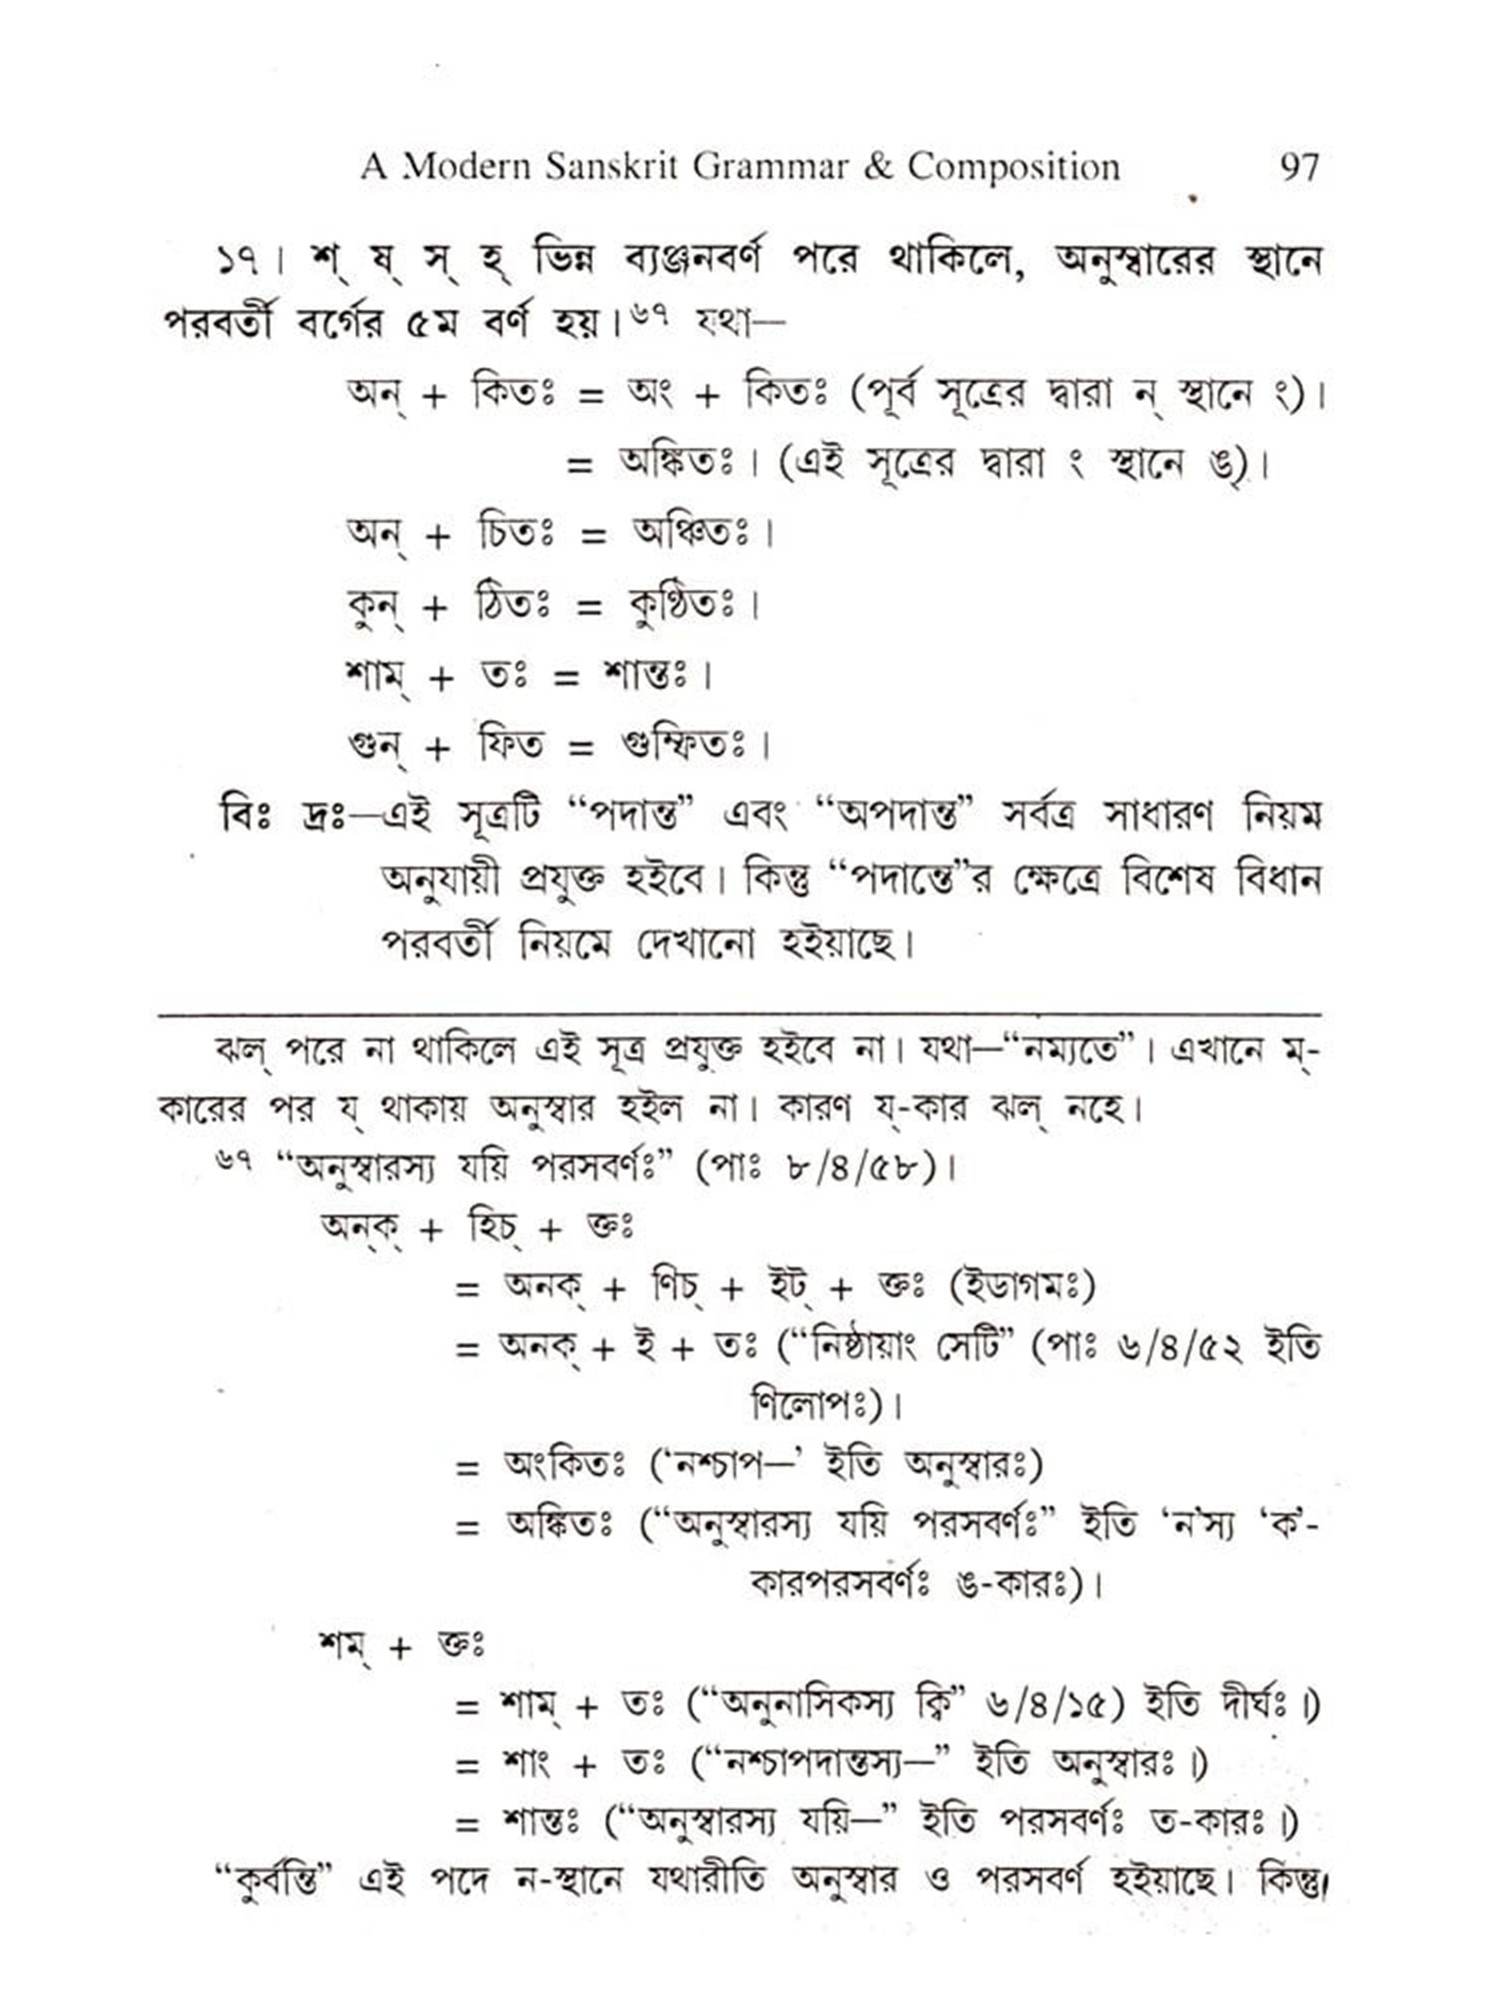 A Modern Sanskrit Grammar & Composition 97
১৭। শ্ ষ্ স্ হ্ ভিন্ন ব্যঞ্জনবর্ণ পরে থাকিলে, অনুস্বারের স্থানে
পরবর্তী বর্গের ৫ম বর্ণ হয়।৬৭ যথা—
অন্ + কিতঃ = অং + কিতঃ (পূর্ব সূত্রের দ্বারা ন্ স্থানে ং)।
= অঙ্কিতঃ। (এই সূত্রের দ্বারা ং স্থানে ঙ্)।
অন্ + চিতঃ = অঞ্চিতঃ।
কুন্ + ঠিতঃ = কুণ্ঠিতঃ।
শাম্ + তঃ = শান্তঃ।
গুন্ + ফিত = গুম্ফিতঃ।
বিঃ দ্রঃ—এই সূত্রটি “পদান্ত” এবং “অপদান্ত” সর্বত্র সাধারণ নিয়ম
অনুযায়ী প্রযুক্ত হইবে। কিন্তু “পদান্তে”র ক্ষেত্রে বিশেষ বিধান
পরবর্তী নিয়মে দেখানো হইয়াছে।
ঝল্ পরে না থাকিলে এই সূত্র প্রযুক্ত হইবে না। যথা—“নম্যতে”। এখানে ম্-
কারের পর য্ থাকায় অনুস্বার হইল না। কারণ য্-কার ঝল্ নহে।
৬৭ “অনুস্বারস্য যয়ি পরসবর্ণঃ” (পাঃ ৮/৪/৫৮)।
অন্‌ক্ + হিচ্ + ক্তঃ
= অনক্ + ণিচ্ + ইট্ + ক্তঃ (ইডাগমঃ)
= অনক্ + ই + তঃ (“নিষ্ঠায়াং সেটি” (পাঃ ৬/৪/৫২ ইতি
ণিলোপঃ)।
= অংকিতঃ (‘নশ্চাপ—’ ইতি অনুস্বারঃ)
= অঙ্কিতঃ (“অনুস্বারস্য যয়ি পরসবর্ণঃ” ইতি ‘ন’স্য ‘ক’-
কারপরসবর্ণঃ ঙ-কারঃ)।
শম্ + ক্তঃ
= শাম্ + তঃ (“অনুনাসিকস্য ক্বি” ৬/৪/১৫) ইতি দীর্ঘঃ।)
= শাং + তঃ (“নশ্চাপদান্তস্য—” ইতি অনুস্বারঃ।)
= শান্তঃ (“অনুস্বারস্য যয়ি—” ইতি পরসবর্ণঃ ত-কারঃ।)
“কুর্বন্তি” এই পদে ন-স্থানে যথারীতি অনুস্বার ও পরসবর্ণ হইয়াছে। কিন্তু।